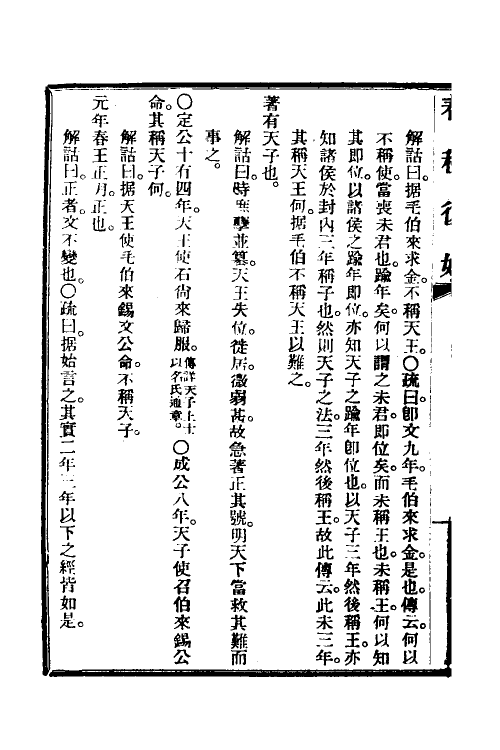 解詁曰。据毛伯來求金。不稱天王。○疏曰。卽文九年。毛伯來求金。是也。傳云。何以
不稱使。當喪未君也。踰年矣。何以謂之未君。卽位矣。而未稱王也。未稱王。何以知
其卽位。以諸侯之踰年卽位。亦知天子之踰年卽位也。以天子三年然後稱王。亦
知諸侯於封內三年稱子也。然則天子之法。三年然後稱王。故此傳云。此未三年。
其稱天王何。据毛伯不稱天王以難之。
著有天子也。
解詁曰。時庶孼並簒。天王失位。徙居微弱甚。故急著正其號。明天下當救其難而
事之。
○定公十有四年。天王使石尙來歸脤。傳詳天子上士以名氏通章。○成公八年。天子使召伯來錫公
命。其稱天子何。
解詁曰。据天王使毛伯來錫文公命。不稱天子。
元年春王正月。正也。
解詁曰。正者。文不變也。○疏曰。据始言之。其實二年三年以下之經皆如是。